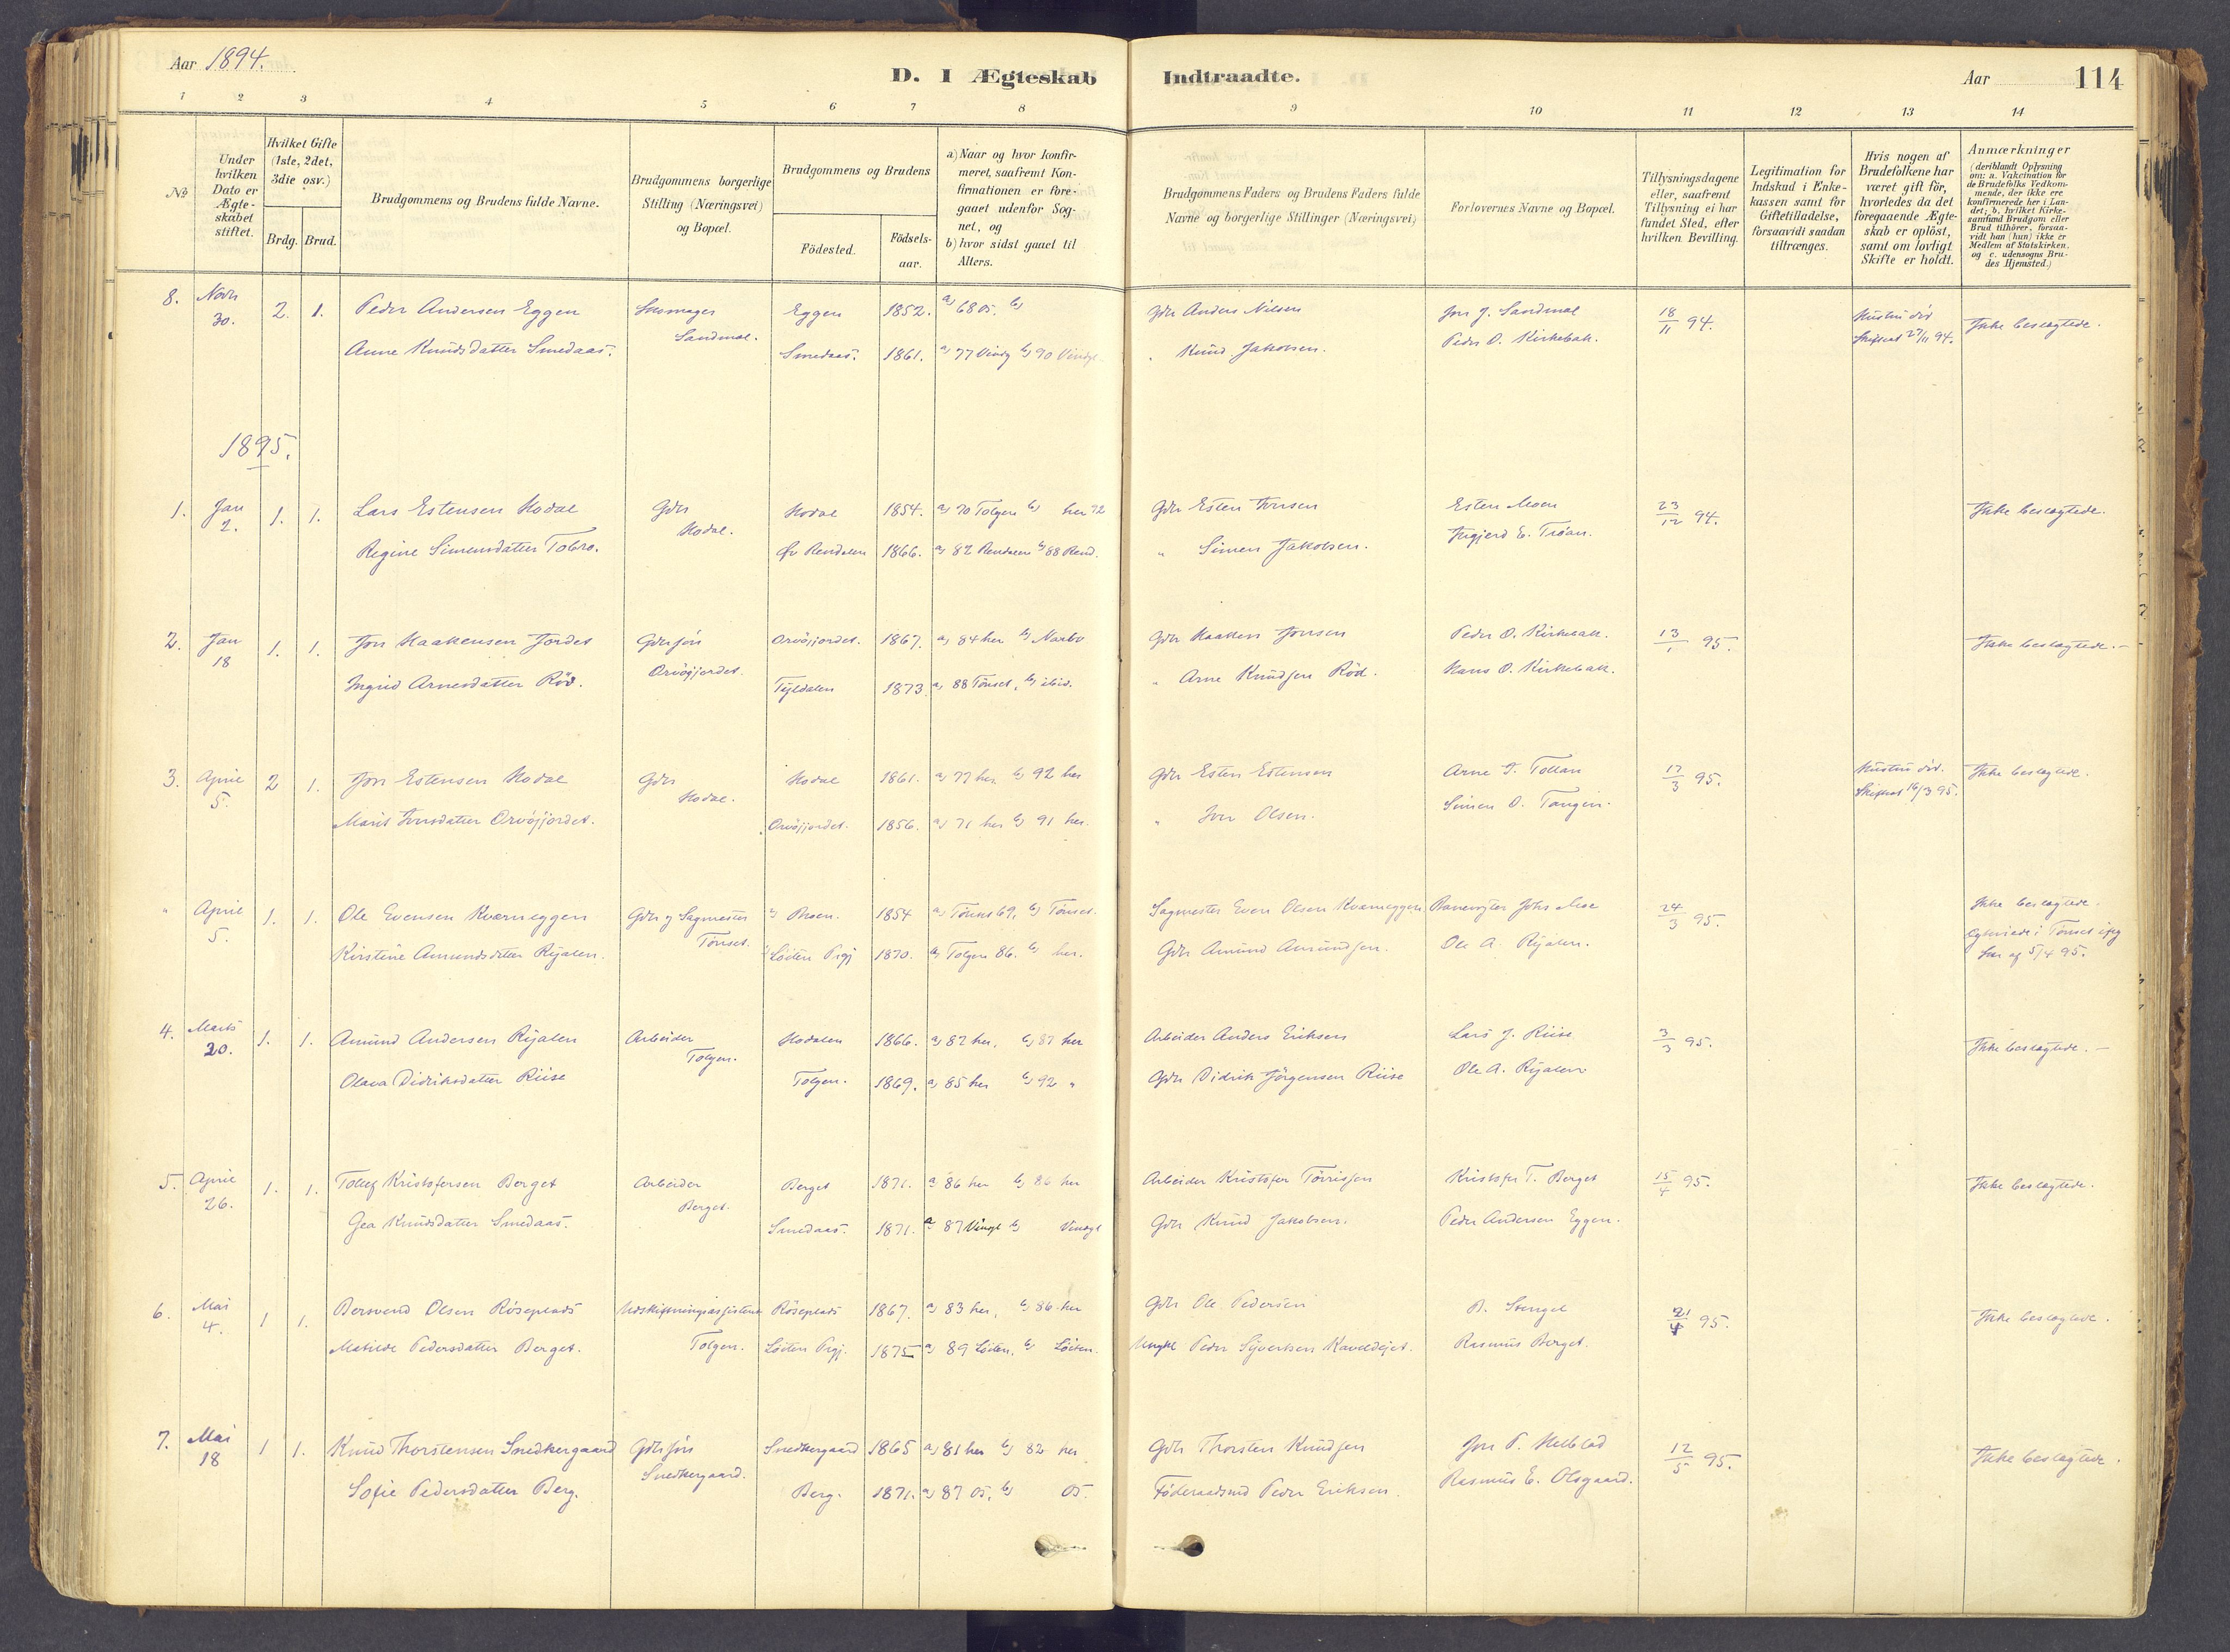 Aar 1894.
D. I Ægteskab Indtraadte.
Aar 114
1 2 3 4 5 6 7 8 9 10 11 12 13 14
No
Under hvilken Dato er Ægteskabet stiftet.
Hvilket Gifte (1ste, 2det, 3die osv.)
Brdg. Brud.
Brudgommens og Brudens fulde Navne.
Brudgommens borgerlige Stilling (Næringsvei) og Bopæl.
Brudgommens og Brudens
Födested. Födselsaar.
a) Naar og hvor konfirmeret, saafremt Konfirmationen er foregaaet udenfor Sognet, og
b) hvor sidst gaaet til Alters.
Brudgommens Faders og Brudens Faders fulde Navne og borgerlige Stillinger (Næringsvei)
Forlovernes Navne og Bopæl.
Tillysningsdagene eller, saafremt Tillysning ei har fundet Sted, efter hvilken Bevilling.
Legitimation for Indskud i Enkekassen samt for Giftetilladelse, forsaavidt saadan tiltrænges.
Hvis nogen af Brudefolkene har været gift för, hvorledes da det foregaaende Ægteskab er oplöst, samt om lovligt Skifte er holdt.
Anmærkninger (deriblandt Oplysning om: a. Vakcination for de Brudefolks Vedkommende, der ikke ere konfirmerede her i Landet; b. hvilket Kirkesamfund Brudgom eller Brud tilhörer, forsaavidt han (hun) ikke er Medlem af Statskirken, og c. udensogns Brudes Hjemsted.)
8. Novbr 30. 2. 1. Peder Andersen Eggen Skomager Sandmæl. Eggen 1852. a) 68 Os. b) Gdr Anders Nilsen Jon J. Sandmæl 18/11 94. Hustru död Skiftet 27/11 94. Ikke beslægtede.
Anne Knudsdatter Smedaas. Smedaas. 1861. a) 77 Vingl b) 90 Vingl. " Knud Jakobsen. Peder O. Kirkebak.
1895.
1. Jan 2. 1. 1. Lars Estensen Hodal Gdr Hodal. Hodal 1854. a) 70 Tolgen b) her 92 Gdr Esten Iversen Esten Moen 23/12 94. Ikke beslægtede.
Regine Simensdatter Tobro. Øv Rendalen 1866. a) 82 Rendalen b) 88 Rend. " Simen Jakobsen. Ingjerd E. Trøan.
2. Jan 18 1. 1. Jon Haakensen Jordet Gdrsøn Orvösjordet. Orvösjordet. 1867. a) 84 her b) Narbu Gdr Haaken Jonsen Peder O. Kirkebak. 13/1 95. Ikke beslægtede.
Ingrid Arnesdatter Röd. Tyldalen 1873. a) 88 Tönset, b) ibid. " Arne Knudsen Röd. Hans O. Kirkebak.
3. April 5. 2 1. Jon Estensen Hodal Gdr Hodal. Hodal 1861. a) 77 her b) 92 her Gdr Esten Estensen Arne T. Tollan 17/3 95. Hustru död. Skiftet 16/3 95. Ikke beslægtede.
Marit Iversdatter Orvösjordet. Orvösjordet. 1856. a) 71 her b) 91 her. " Iver Olsen. Simen O. Tangen.
" April 5. 1. 1. Ole Evensen Kværneggen Gdr og Sagmester Tönset. Moen. 1854 a) Tönset 69, b) Tönset. Sagmester Even Olsen Kværneggen Banevogter Johs Moe 24/3 95. Ikke beslægtede.
Kirstine Amundsdatter Ryalen. Löiten Prgj 1870. a) Tolgen 86. b) her. Gdr Amund Amundsen. Ole A. Ryalen. af 5/4 95.
4. Marts 20. 1. 1. Amund Andersen Ryalen Arbeider Tolgen. Hodalen 1866. a) 82 her, b) 87 her Arbeider Anders Eriksen Lars J. Riise 3/3 95. Ikke beslægtede.
Olava Didriksdatter Riise Tolgen. 1869. a) 85 her b) 92 " Gdr Didrik Jörgensen Riise Ole A. Ryalen
5. April 26. 1. 1. Tollef Kristofersen Berget Arbeider Berget. Berget 1871. a) 86 her b) 86 her Arbeider Kristofer Törrisen Kristofer T. Berget 15/4 95. Ikke beslægtede.
Gea Knudsdatter Smedaas. Smedaas. 1871. a) 87 Vingl b) Vingl Gdr Knud Jakobsen. Peder Andersen Eggen.
6. Mai 4. 1 1. Bersvend Olsen Röseplads Udskiftningsassistent Tolgen. Röseplads 1867. a) 83 her, b) 86 her Gdr Ole Pedersen B. Stengel 21/4 95. Ikke beslægtede.
Matilde Pedersdatter Berget. Löiten Prgj. 1875 a) 89 Löiten, b) Löiten. Peder Syvertsen Rasmus Berget.
7. Mai 18 1 1. Knud Thorstensen Snedkergaard Gdrsøn Snedkergaard. Snedkergaard 1865 a) 81 her b) 82 her Gdr Thorsten Knudsen Jon P. Helblad 12/5 95. Ikke beslægtede.
Sofie Pedersdatter Berg. Berg. 1871. a) 87 Os, b) Os. Föderaadsmd Peder Eriksen. Rasmus E. Olsgaard.